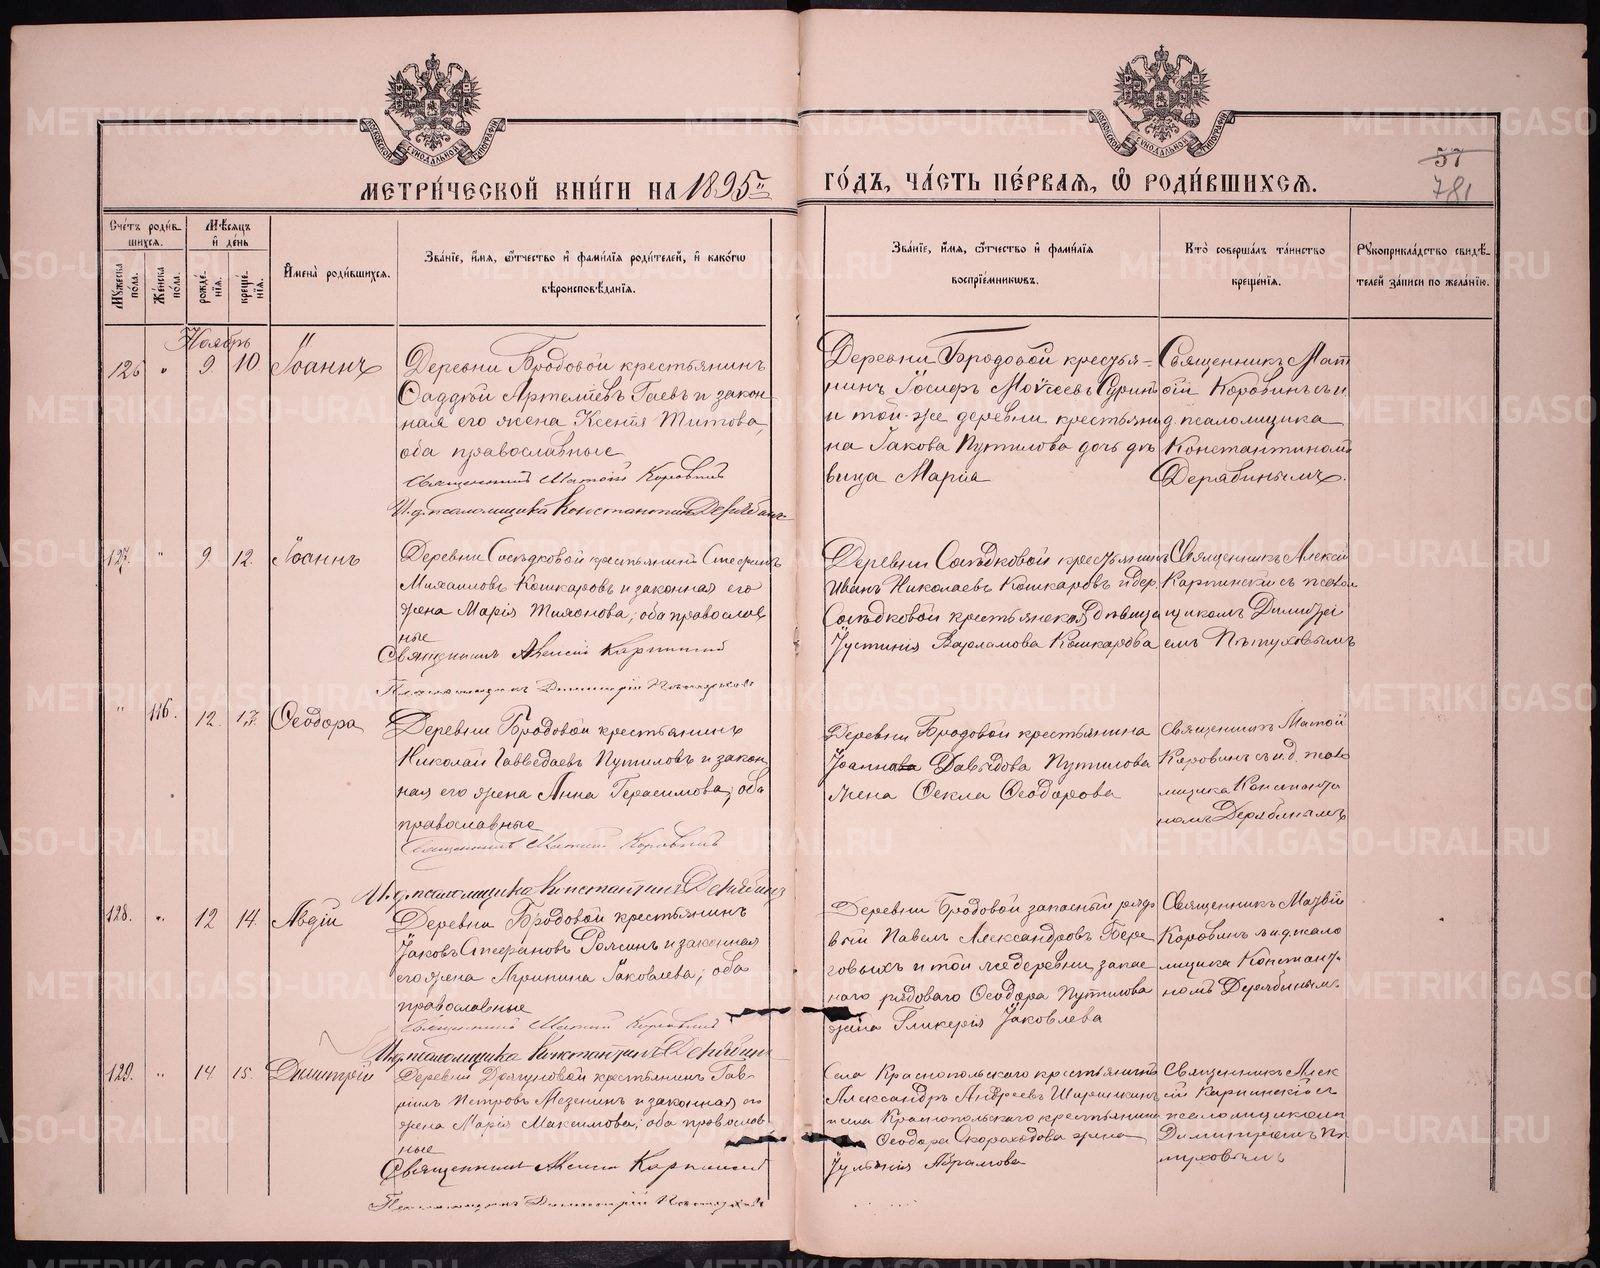 МЕТРИ́ЧЕСКОЙ КНИ́ГИ НА 1895й
ГО́ДЪ, ЧА́СТЬ ПЕ́РВАЯ, Ѡ РОДИ́ВШИХСЯ.
57
781
МОСКОВСКОЙ СѴНОДАЛЬНОЙ ТИПОГРАФІИ
МОСКОВСКОЙ СѴНОДАЛЬНОЙ ТИПОГРАФІИ
Сче́тъ роди́в-
шихся.
Мѣсяцъ
и́ де́нь
Мꙋжеска по́ла.
Же́нска по́ла.
рожде́-
нїя.
креще́-
нїя.
И҆мена̀ роди́вшихся.
Зва́нїе, и҆́мя, ѻ҆́тчество и҆ фами́лїя роди́телей, и҆ како́гѡ
вѣроисповѣ́данїя.
Зва́нїе, и҆́мя, ѻ҆́тчество и҆ фами́лїя
воспрїе́мникѡвъ.
Кто̀ соверша́лъ та́инство
креще́нїя.
Рꙋкоприкла́дство свидѣ́-
телей за́писи по жела́нїю.
Ноябрь
126 " 9. 10. Іоаннъ
Деревни Бродовой крестьянинъ
Ѳаддей Артемьевъ Гаевъ и закон-
ная его жена Ксенія Титова,
оба православные
Священникъ Матѳій Коровинъ
И.д. псаломщика Константинъ Дерябинъ
Деревни Бродовой крестья-
нинъ Іосифъ Моисеевъ
и той-же деревни крестьяни-
на Іакова Путилова дочь дѣ-
вица Марія
Священникъ Матѳ
ій Коровинъ съ и.
д. псаломщика
Константиномъ
Дерябинымъ.
127. " 9 12. Іоаннъ
Деревни Сосѣдковой крестьянинъ Стефанъ
Михаиловъ Кошкаровъ и законная его
жена Марія Тихонова, оба православ
ные
Священникъ Алексій Карпинскій
Псаломщикъ Димитрій Пѣтуховъ
Деревни Сосѣдковой крестьянинъ
Иванъ Николаевъ Кошкаровъ и дер.
Сосѣдковой крестьянская дѣвица
Іустинія Варламова Кошкарова
Священникъ Алексій
Карпинскій съ псалом
щикомъ Димитрі
емъ Пѣтуховымъ
" 116. 12. 13. Ѳеодора
Деревни Бродовой крестьянинъ
Николай Путиловъ и закон
ная его жена Анна Герасимова, оба
православные
Священникъ Матѳій Коровинъ
И.д. псаломщика Константинъ Дерябинъ
Деревни Бродовой крестьянина
Іоанна Давыдова Путилова
жена Ѳекла Ѳеодорова
Священникъ Матѳій
Коровинъ съ и.д. псало
мщика Константи
номъ Дерябинымъ
128. " 12 14. Авдій
Деревни Бродовой крестьянинъ
Іаковъ Стефановъ и законная
его жена Агрипина Іаковлева, оба
православные
Священникъ Матѳій Коровинъ
И.д. псаломщика Константинъ Дерябинъ
Деревни Бродовой запасный рядо
вой Павелъ Александровъ Бере
говыхъ и той же деревни запас
наго рядоваго Ѳеодора Путилова
жена Гликерія Іаковлева
Священникъ Матѳій
Коровинъ съ и.д. псало
мщика Константи
номъ Дерябинымъ
129. " 14. 15. Димитрій
Деревни крестьянинъ Гав-
ріилъ Петровъ Мезенинъ и законная его
жена Марія Максимова, оба православ
ные
Священникъ Алексій Карпинскій
Псаломщикъ Димитрій Пѣтуховъ
Села Краснопольскаго крестьянинъ
Александръ Андреевъ
и села Краснопольскаго крестьянина
Ѳеодора Скороходова жена
Іуліанія Абрамова
Священникъ Алек
сій Карпинскій съ
псаломщикомъ
Димитріемъ Пѣ
туховымъ